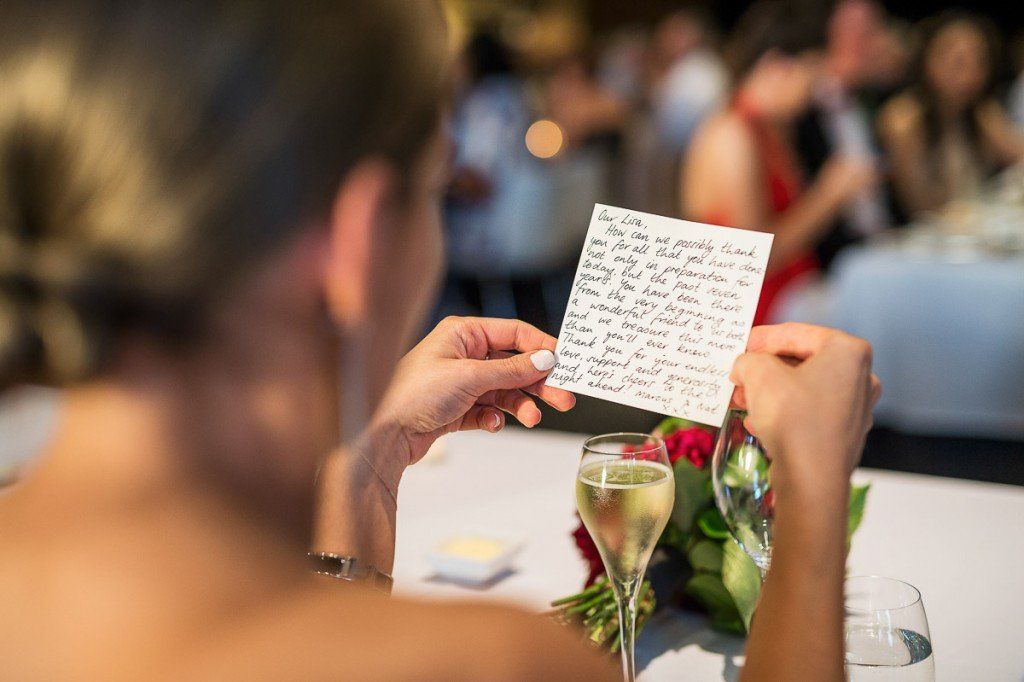 Our Lisa,
How can we possibly thank
you for all that you have done
not only in preparation for
today, but the past seven
years. You have been there
from the very beginning as
a wonderful friend to us both
and we treasure this more
than you'll ever know.
Thank you for your endless
love, support and generosity
and here's cheers to the
night ahead! Marcus & Nat
xxx